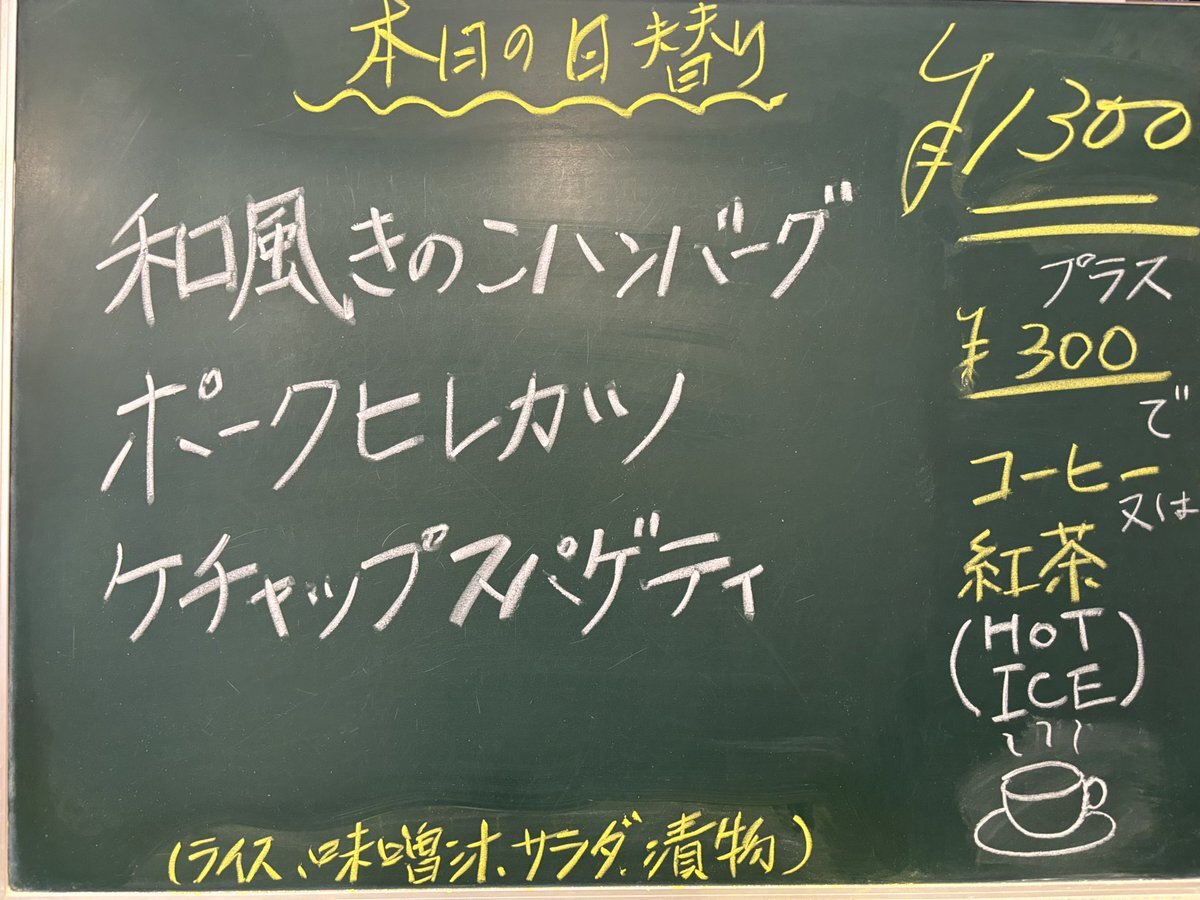 本日の日替り
和風きのこハンバーグ
ポークヒレカツ
ケチャップスパゲティ
(ライス、味噌汁、サラダ、漬物)
¥1300
プラス
¥300
で
コーヒー
又は
紅茶
(HOT
ICE)